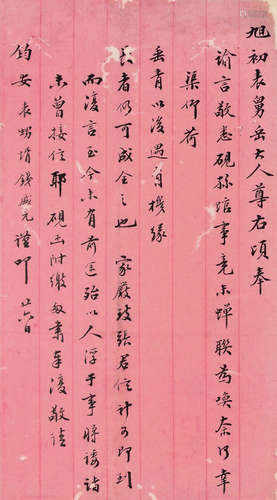 旭初表舅岳大人尊右頃奉
諭言敬悉硯孫館事竟未蟬聯為喚奈何幸
渠仰荷
垂青以後遇有機緣
長者仍可成全之也 家嚴致張君信計可即到
而復言至今未有前途殆以人浮于事時諉諸
未曾接信耶 硯函附繳匆肅奉復敬請
鈞安 表甥壻錢威元謹叩 廿六日